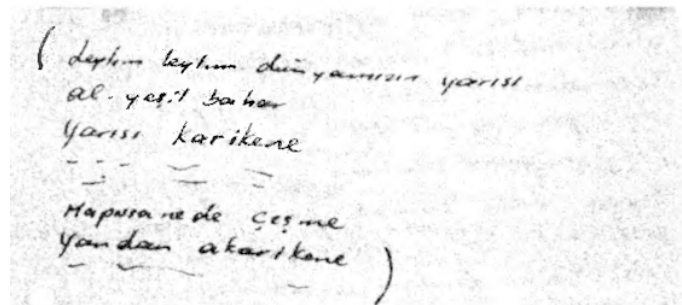 ( Leylim leylim dünyamızın yarısı
al-yeşil bahar
Yarısı karikene
Mapusanede çeşme
Yandan akarikene )